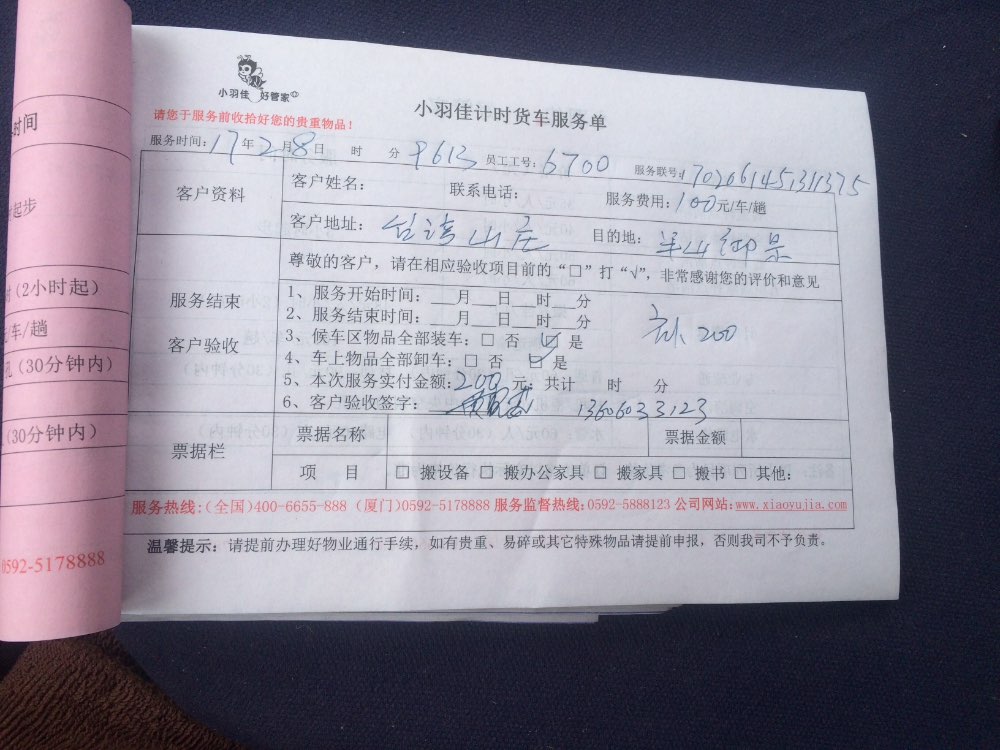 小羽佳 好管家
小羽佳计时货车服务单
请您于服务前收拾好您的贵重物品！
服务时间：17年2月8日 时 分 员工工号：6700 服务联号：
客户资料
客户姓名： 联系电话： 服务费用：100元/车/趟
客户地址：台湾山庄 目的地：半山御景
服务结束
客户验收
尊敬的客户，请在相应验收项目前的“□”打“√”，非常感谢您的评价和意见
1、服务开始时间：___月___日___时___分
2、服务结束时间：___月___日___时___分
3、候车区物品全部装车：□ 否 □ 是
4、车上物品全部卸车：□ 否 □ 是
200
5、本次服务实付金额：200 元；共计 时 分
6、客户验收签字： 13606033123
票据栏
票据名称 票据金额
项 目 □ 搬设备 □ 搬办公家具 □ 搬家具 □ 搬书 □ 其他：
服务热线：(全国)400-6655-888 (厦门)0592-5178888 服务监督热线：0592-5888123 公司网站：www.xiaoyujia.com
温馨提示：请提前办理好物业通行手续，如有贵重、易碎或其它特殊物品请提前申报，否则我司不予负责。
时间
起步
(2小时起)
车/趟
(30分钟内)
(30分钟内)
0592-5178888